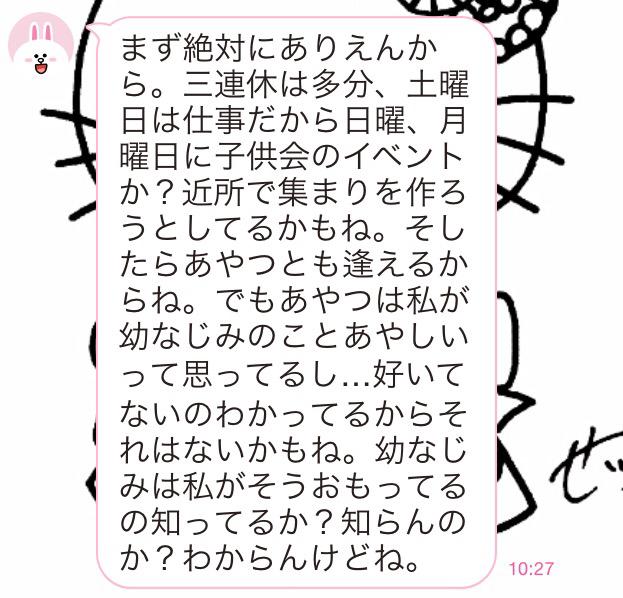 まず絶対にありえんか
ら。三連休は多分、土曜
日は仕事だから日曜、月
曜日に子供会のイベント
か？近所で集まりを作ろ
うとしてるかもね。そし
たらあやつとも逢えるか
らね。でもあやつは私が
幼なじみのことあやしい
って思ってるし…好いて
ないのわかってるからそ
れはないかもね。幼なじ
みは私がそうおもってる
の知ってるか？知らんの
か？わからんけどね。
10:27
ゼッ